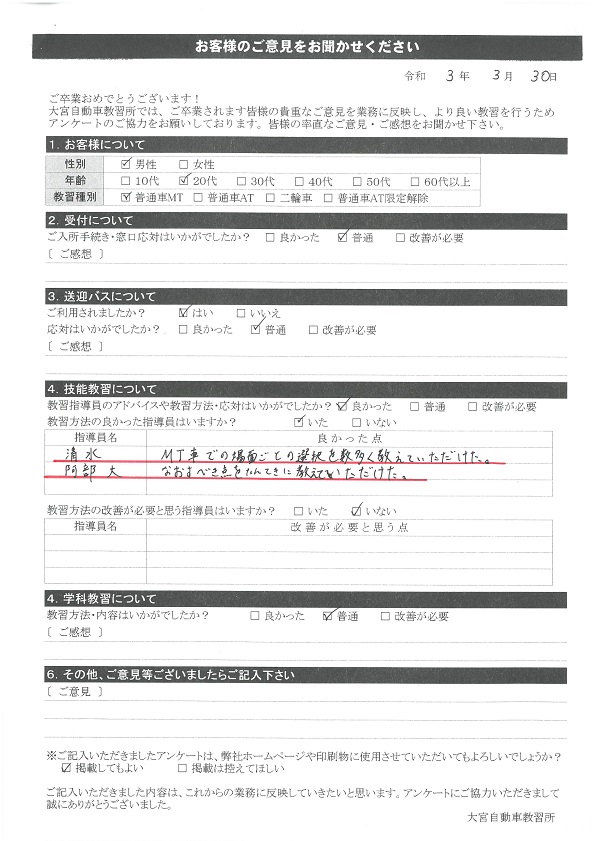 お客様のご意見をお聞かせください
令和 3年 3月 30日
ご卒業おめでとうございます！
大宮自動車教習所では、ご卒業されます皆様の貴重なご意見を業務に反映し、より良い教習を行うため
アンケートのご協力をお願いしております。皆様の率直なご意見・ご感想をお聞かせ下さい。
1. お客様について
性別 ☑男性 □女性
年齢 □10代 ☑20代 □30代 □40代 □50代 □60代以上
教習種別 ☑普通車MT □普通車AT □二輪車 □普通車AT限定解除
2. 受付について
ご入所手続き・窓口応対はいかがでしたか？ □良かった ☑普通 □改善が必要
〔 ご感想 〕
3. 送迎バスについて
ご利用されましたか？ ☑はい □いいえ
応対はいかがでしたか？ □良かった ☑普通 □改善が必要
〔 ご感想 〕
4. 技能教習について
教習指導員のアドバイスや教習方法・応対はいかがでしたか？ ☑良かった □普通 □改善が必要
教習方法の良かった指導員はいますか？ ☑いた □いない
指導員名 良かった点
清水 MT車での場面ごとの選択を数多く教えていただけた。
阿部 大 なおすべき点をたんてきに教えていただけた。
教習方法の改善が必要と思う指導員はいますか？ □いた ☑いない
指導員名 改善が必要と思う点
4. 学科教習について
教習方法・内容はいかがでしたか？ □良かった ☑普通 □改善が必要
〔 ご感想 〕
6. その他、ご意見等ございましたらご記入下さい
〔 ご意見 〕
※ご記入いただきましたアンケートは、弊社ホームページや印刷物に使用させていただいてもよろしいでしょうか？
☑掲載してもよい □掲載は控えてほしい
ご記入いただきました内容は、これからの業務に反映していきたいと思います。アンケートにご協力いただきまして
誠にありがとうございました。
大宮自動車教習所